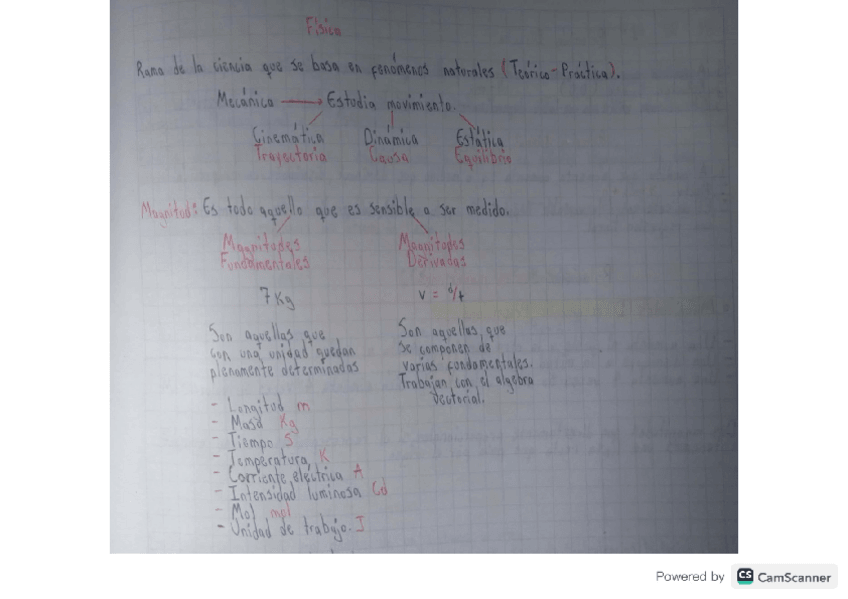 Física
Rama de la ciencia que se basa en fenómenos naturales (Teórico-Práctica).
Mecánica → Estudia movimiento.
Cinemática Dinámica Estática
Trayectoria Causa Equilibrio
Magnitud: Es todo aquello que es sensible a ser medido.
Magnitudes
Fundamentales
7 Kg
Son aquellas que
con una unidad quedan
plenamente determinadas
- Longitud m
- Masa Kg
- Tiempo S
- Temperatura K
- Corriente eléctrica A
- Intensidad luminosa Cd
- Mol mol
- Unidad de trabajo. J
Magnitudes
Derivadas
v = d/t
Son aquellas que
se componen de
varias fundamentales.
Trabajan con el algebra
vectorial.
Powered by CS CamScanner